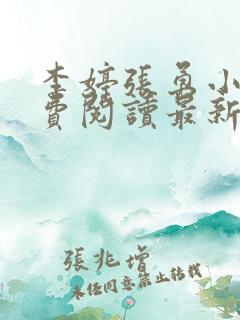 李婷張勇小
費閱讀最新
張兆增
未经同意禁止转载